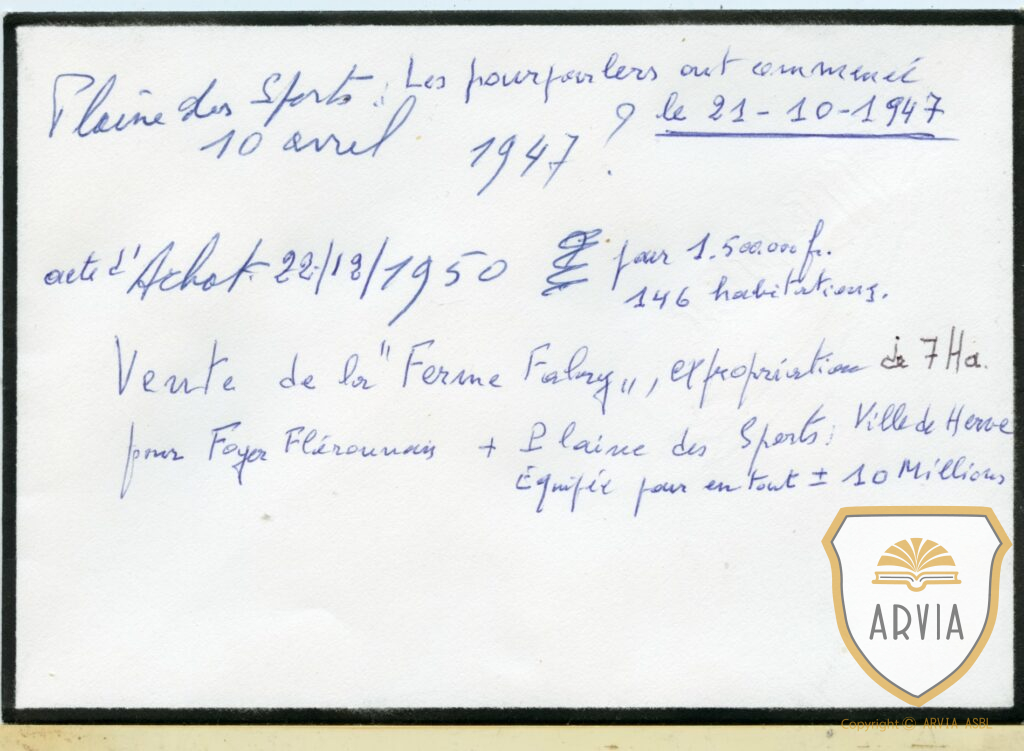 Plaine des Sports : Les pourparlers ont commencé
10 avril 1947 ? le 21-10-1947
acte d'Achat 22/12/1950 pour 1.500.000 fr.
146 habitations.
Vente de la "Ferme Fabry", expropriation de 7 Ha.
pour Foyer Fléronnais + Plaine des Sports; Ville de Herve
Equipée pour en tout ± 10 Millions
ARVIA
Copyright © ARVIA ASBL